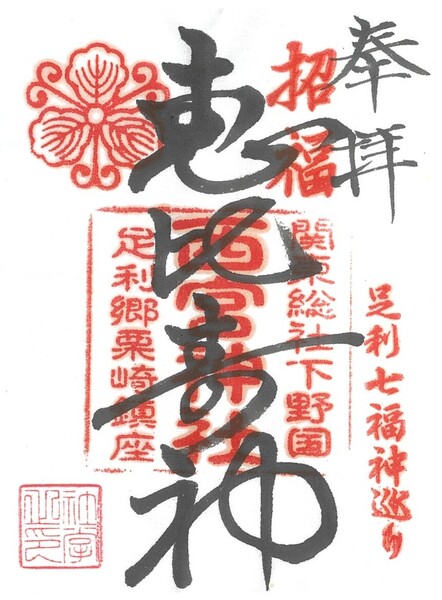 奉拝
足利七福神巡り
招福
関東総社下野国
恵比寿神
西宮神社
足利郷栗崎鎮座